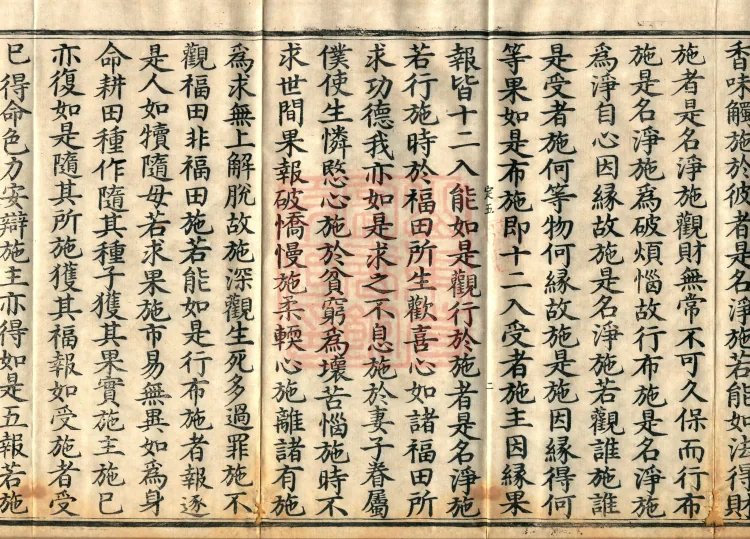 香味觸施於彼者是名淨施若能如法得財
施者是名淨施觀財無常不可久保而行布
施是名淨施為破煩惱故行布施是名淨施
為淨自心因緣故施是名淨施若觀誰施誰
是受者施何等物何緣故施是施因緣得何
等果如是布施即十二入受者施主因緣果
報皆十二入能如是觀行於施者是名淨施
若行施時於福田所生歡喜心如諸福田所
求功德我亦如是求之不息施於妻子眷屬
僕使生憐愍心施於貧窮為壞苦惱施時不
求世間果報破憍慢施柔輭心施離諸有施
為求無上解脫故施深觀生死多過罪施不
觀福田非福田施若能如是行布施者報逐
是人如犢隨母若求果施市易無異如為身
命耕田種作隨其種子獲其果實施主施已
亦復如是隨其所施獲其福報如受施者受
已得命色力安辯施主亦得如是五報若施
定五
二